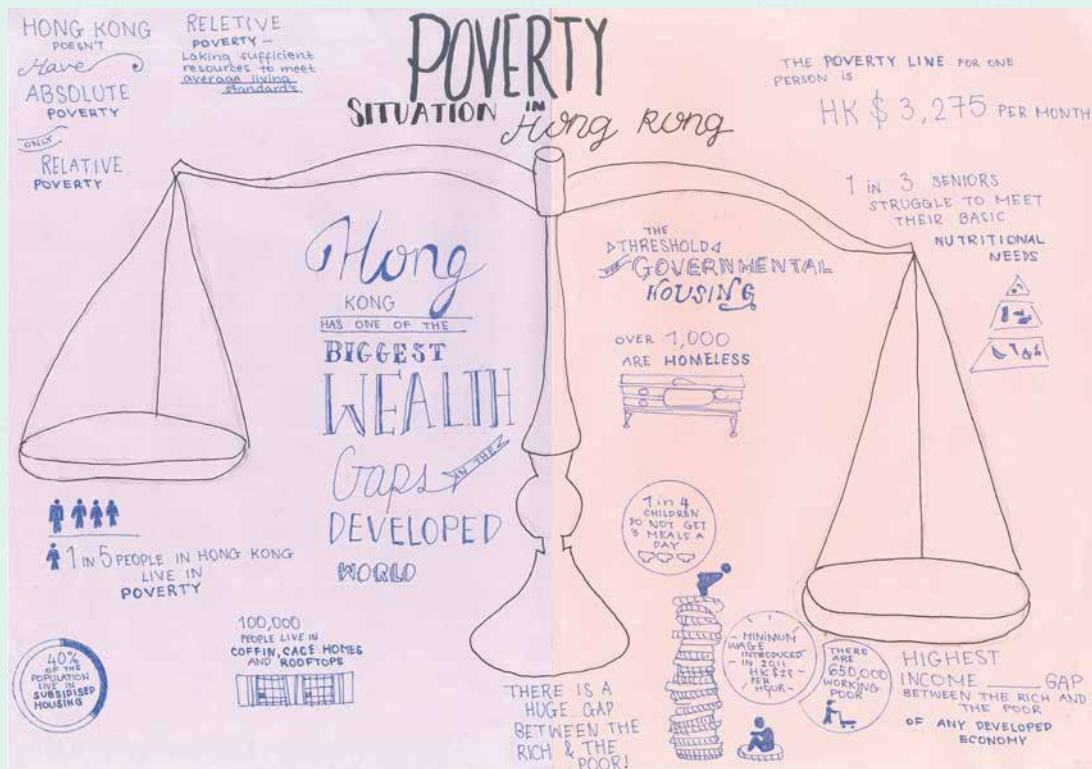 HONG KONG
DOESN'T
Have
ABSOLUTE
POVERTY
ONLY
RELATIVE
POVERTY
RELETIVE
POVERTY –
Laking sufficient
resources to meet
average living
standards
POVERTY
SITUATION IN
Hong Kong
THE POVERTY LINE FOR ONE
PERSON IS
HK $ 3,275 PER MONTH
1 in 3 SENIORS
STRUGGLE TO MEET
THEIR BASIC
NUTRITIONAL
NEEDS
Hong
KONG
HAS ONE OF THE
BIGGEST
WEALTH
Gaps IN THE
DEVELOPED
WORLD
THE
THRESHOLD
GOVERNMENTAL
HOUSING
OVER 1,000
ARE HOMELESS
1 IN 5 PEOPLE IN HONG KONG
LIVE IN
POVERTY
1 in 4
CHILDREN
DO NOT GET
3 MEALS A
DAY
40%
OF THE
POPULATION
LIVE IN
SUBSIDISED
HOUSING
100,000
PEOPLE LIVE IN
COFFIN, CAGE HOMES
AND ROOFTOPS
THERE IS A
HUGE GAP
BETWEEN THE
RICH & THE
POOR!
– MINIMUM
WAGE
INTRODUCED
– IN 2011 –
HK $28 –
PER
HOUR –
THERE
ARE
650,000
WORKING
POOR
HIGHEST
INCOME ____ GAP
BETWEEN THE RICH AND
THE POOR
OF ANY DEVELOPED
ECONOMY